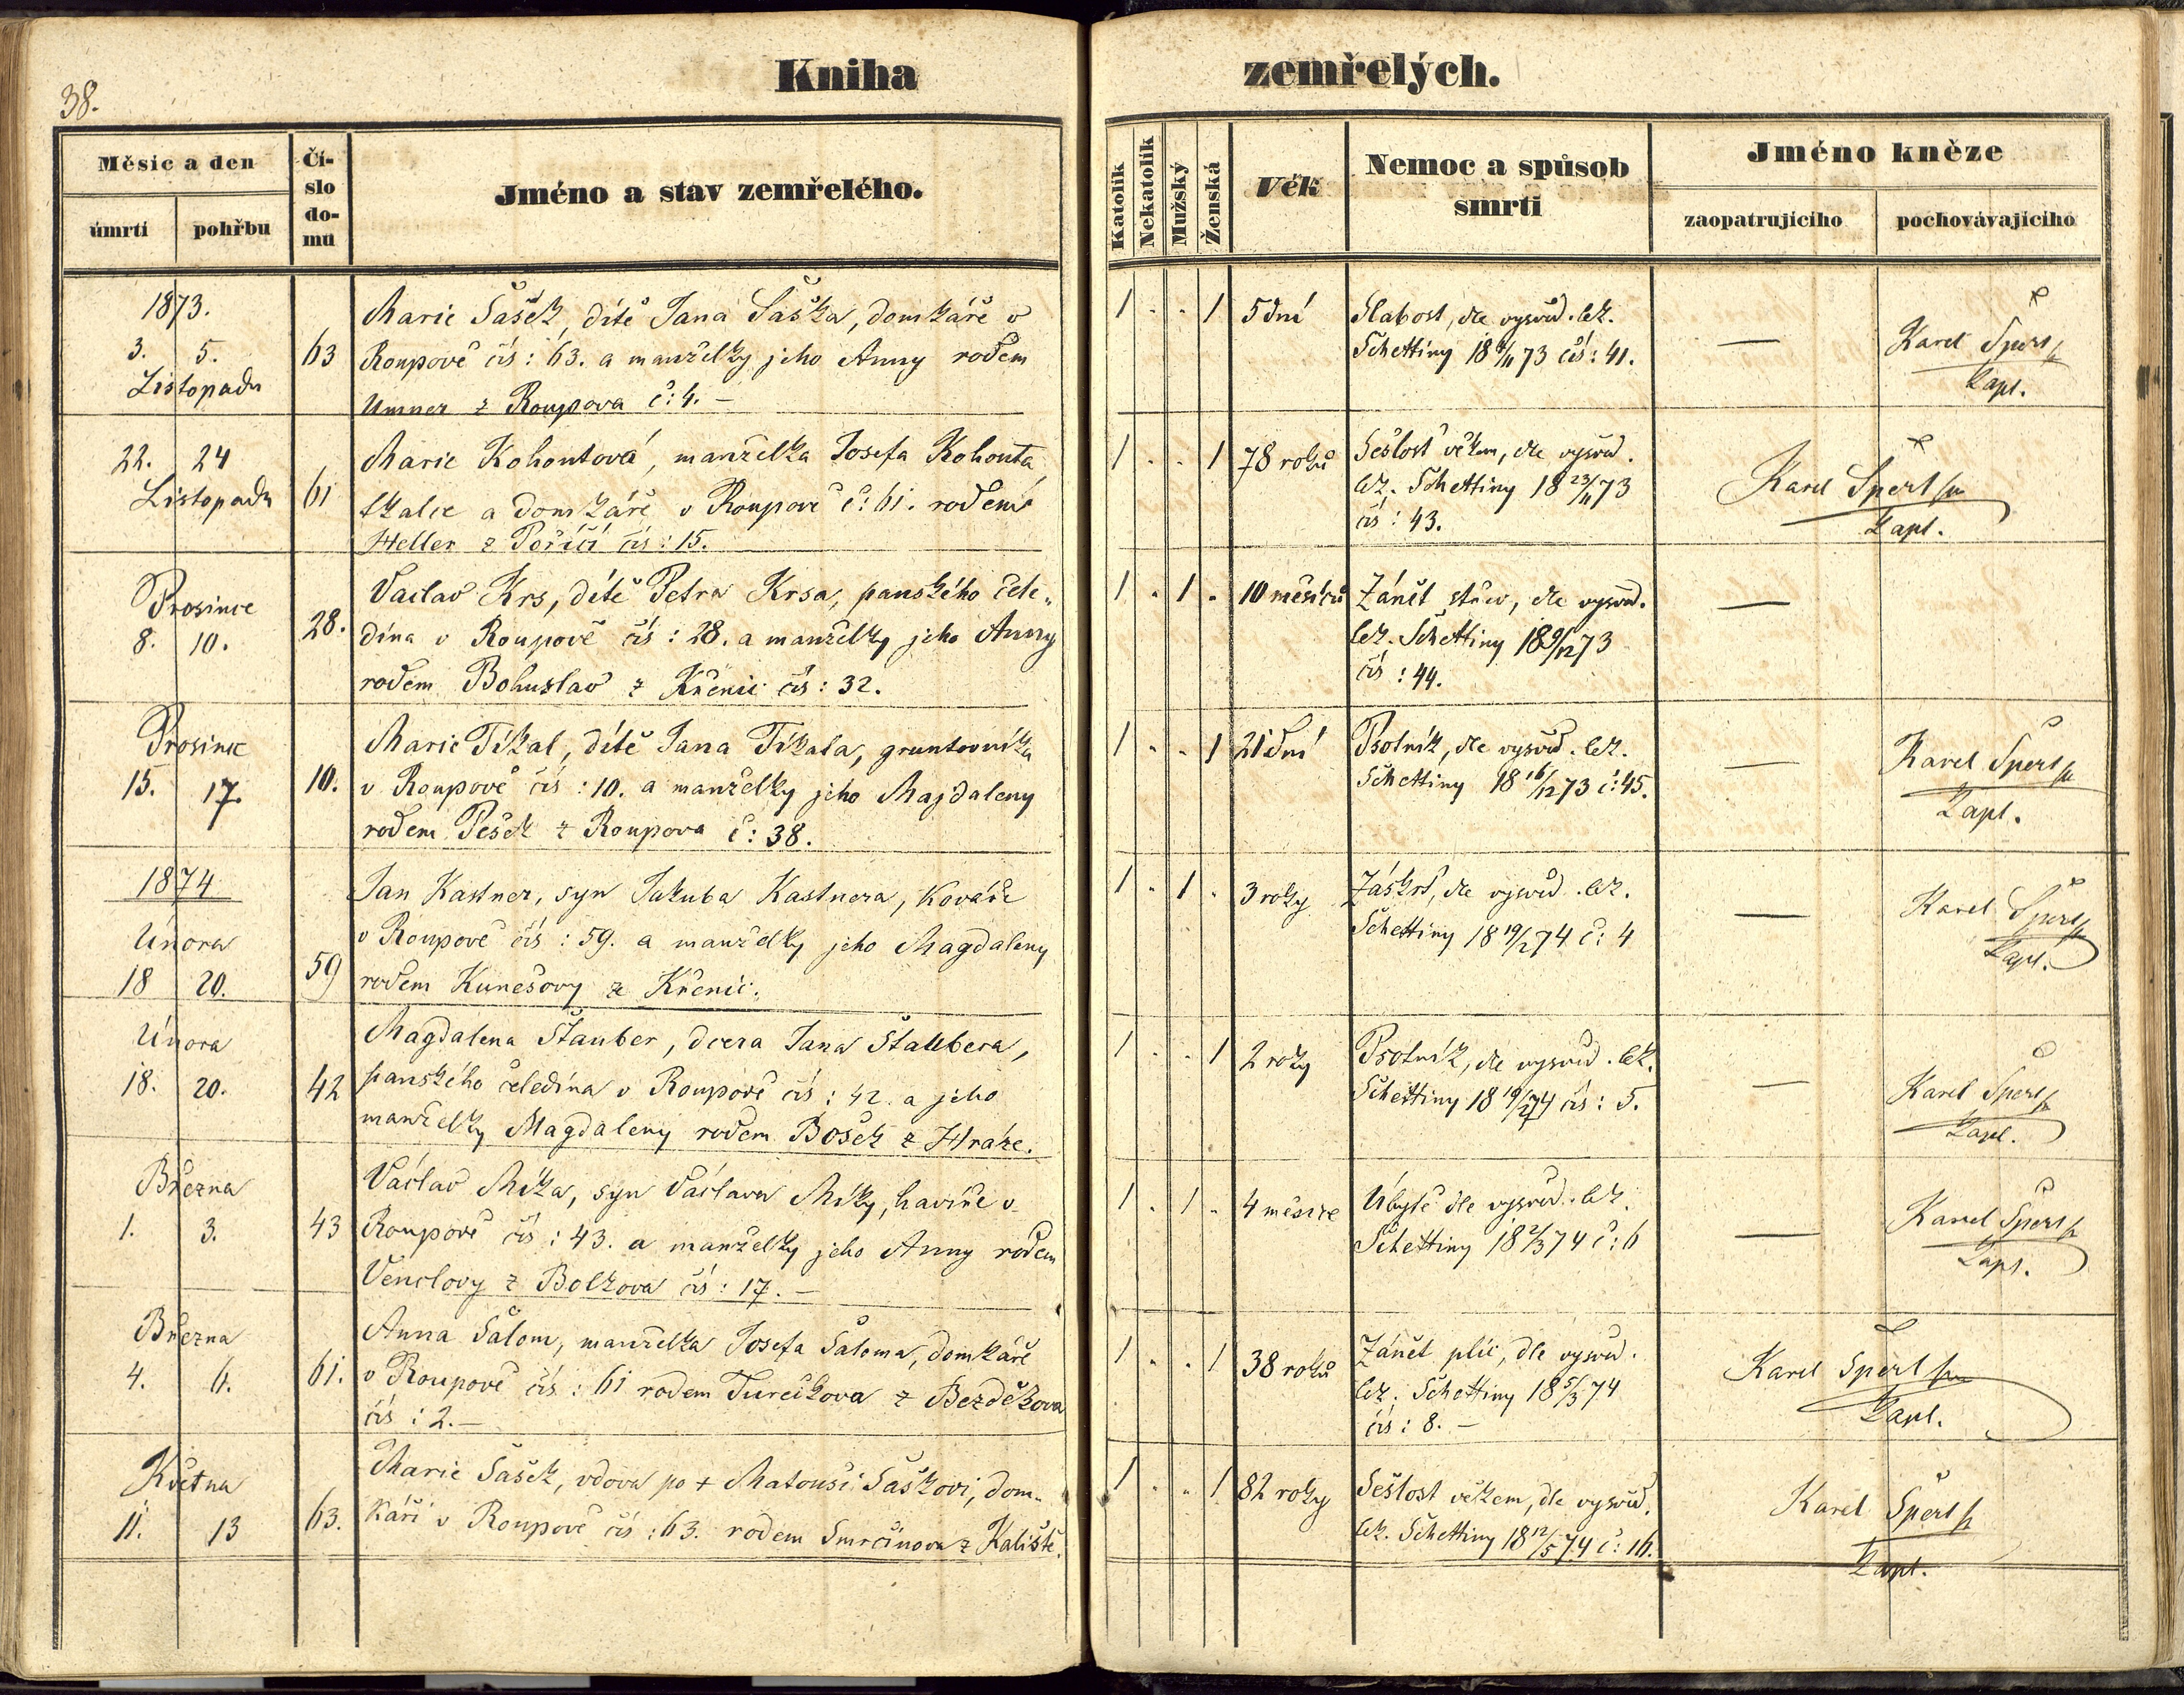 38.
Kniha zemřelých.
Měsíc a den
úmrtí
pohřbu
Čí-
slo
do-
mu
Jméno a stav zemřelého.
Katolík
Nekatolík
Mužský
Ženská
Věk
Nemoc a spůsob
smrti
Jméno kněze
zaopatrujícího
pochovávajícího
1873.
3. 5.
Listopadu
63
Marie Šašek, dítě Jana Šaška, domkáře v
Roupově čís: 63. a manželky jeho Anny rodem
z Roupova č: 4. –
1 . . 1
5 dní
Slabost, dle vysvěd. lék.
Schettiny 18 4/11 73 čís: 41.
—
Karel Šperl
kapl.
22. 24
Listopadu
61
Marie Kohoutová, manželka Josefa Kohouta
tkalce a domkáře v Roupově č: 61. rodem
Heller z Poříčí čís: 15.
1 . . 1
78 roků
Sešlost věkem, dle vysvěd.
lék. Schettiny 18 23/11 73
čís: 43.
Karel Šperl
kapl.
Prosince
8. 10.
28.
Václav Krs, dítě Petra Krsa, panského čele-
dína v Roupově čís: 28. a manželky jeho Anny
rodem Bohuslav z Křenic čís: 32.
1 . 1 .
10 měsíců
Zánět střev, dle vysvěd.
lék. Schettiny 18 9/12 73
čís: 44.
—
Prosince
15. 17.
10.
Marie Tikal, dítě Jana Tikala, gruntovníka
v Roupově čís: 10. a manželky jeho Majdaleny
rodem Pešek z Roupova č: 38.
1 . . 1
21 dní
Psotník, dle vysvěd. lék.
Schettiny 18 16/12 73 č: 45.
—
Karel Šperl
kapl.
1874
Února
18 20.
59
Jan Kastner, syn Jakuba Kastnera, kováře
v Roupově čís: 59. a manželky jeho Magdaleny
rodem Kunešovy z Křenic.
1 . 1 .
3 roky
Záškrt, dle vysvěd. lék.
Schettiny 18 19/2 74 č: 4
—
Karel Šperl
kapl.
Února
18. 20.
42
Magdalena Štauber, dcera Jana Štaubera,
panského čeledína v Roupově čís: 42. a jeho
manželky Magdaleny rodem Bošek z Hráze.
1 . . 1
2 roky
Psotník, dle vysvěd. lék.
Schettiny 18 19/2 74 čís: 5.
—
Karel Šperl
kapl.
Března
1. 3.
43
Václav Míka, syn Václava Míky, havíře v
Roupově čís: 43. a manželky jeho Anny rodem
Venclovy z Bolkova čís: 17. –
1 . 1 .
4 měsíce
Úbytě dle vysvěd. lék.
Schettiny 18 2/3 74 č: 6
—
Karel Šperl
kapl.
Března
4. 6.
61.
Anna Šalom, manželka Josefa Šaloma, domkáře
v Roupově čís: 61 rodem Turečkova z Bezděkova
čís: 2. –
1 . . 1
38 roků
Zánět plic, dle vysvěd.
lék. Schettiny 18 5/3 74
čís: 8. –
Karel Šperl
kapl.
Května
11. 13
63.
Marie Šašek, vdova po + Matouši Šaškovi, dom-
káři v Roupově čís: 63. rodem Smrčinova z Kaliště.
1 . . 1
82 roky
Sešlost věkem, dle vysvěd.
lék. Schettiny 18 12/5 74 č: 16.
Karel Šperl
kapl.